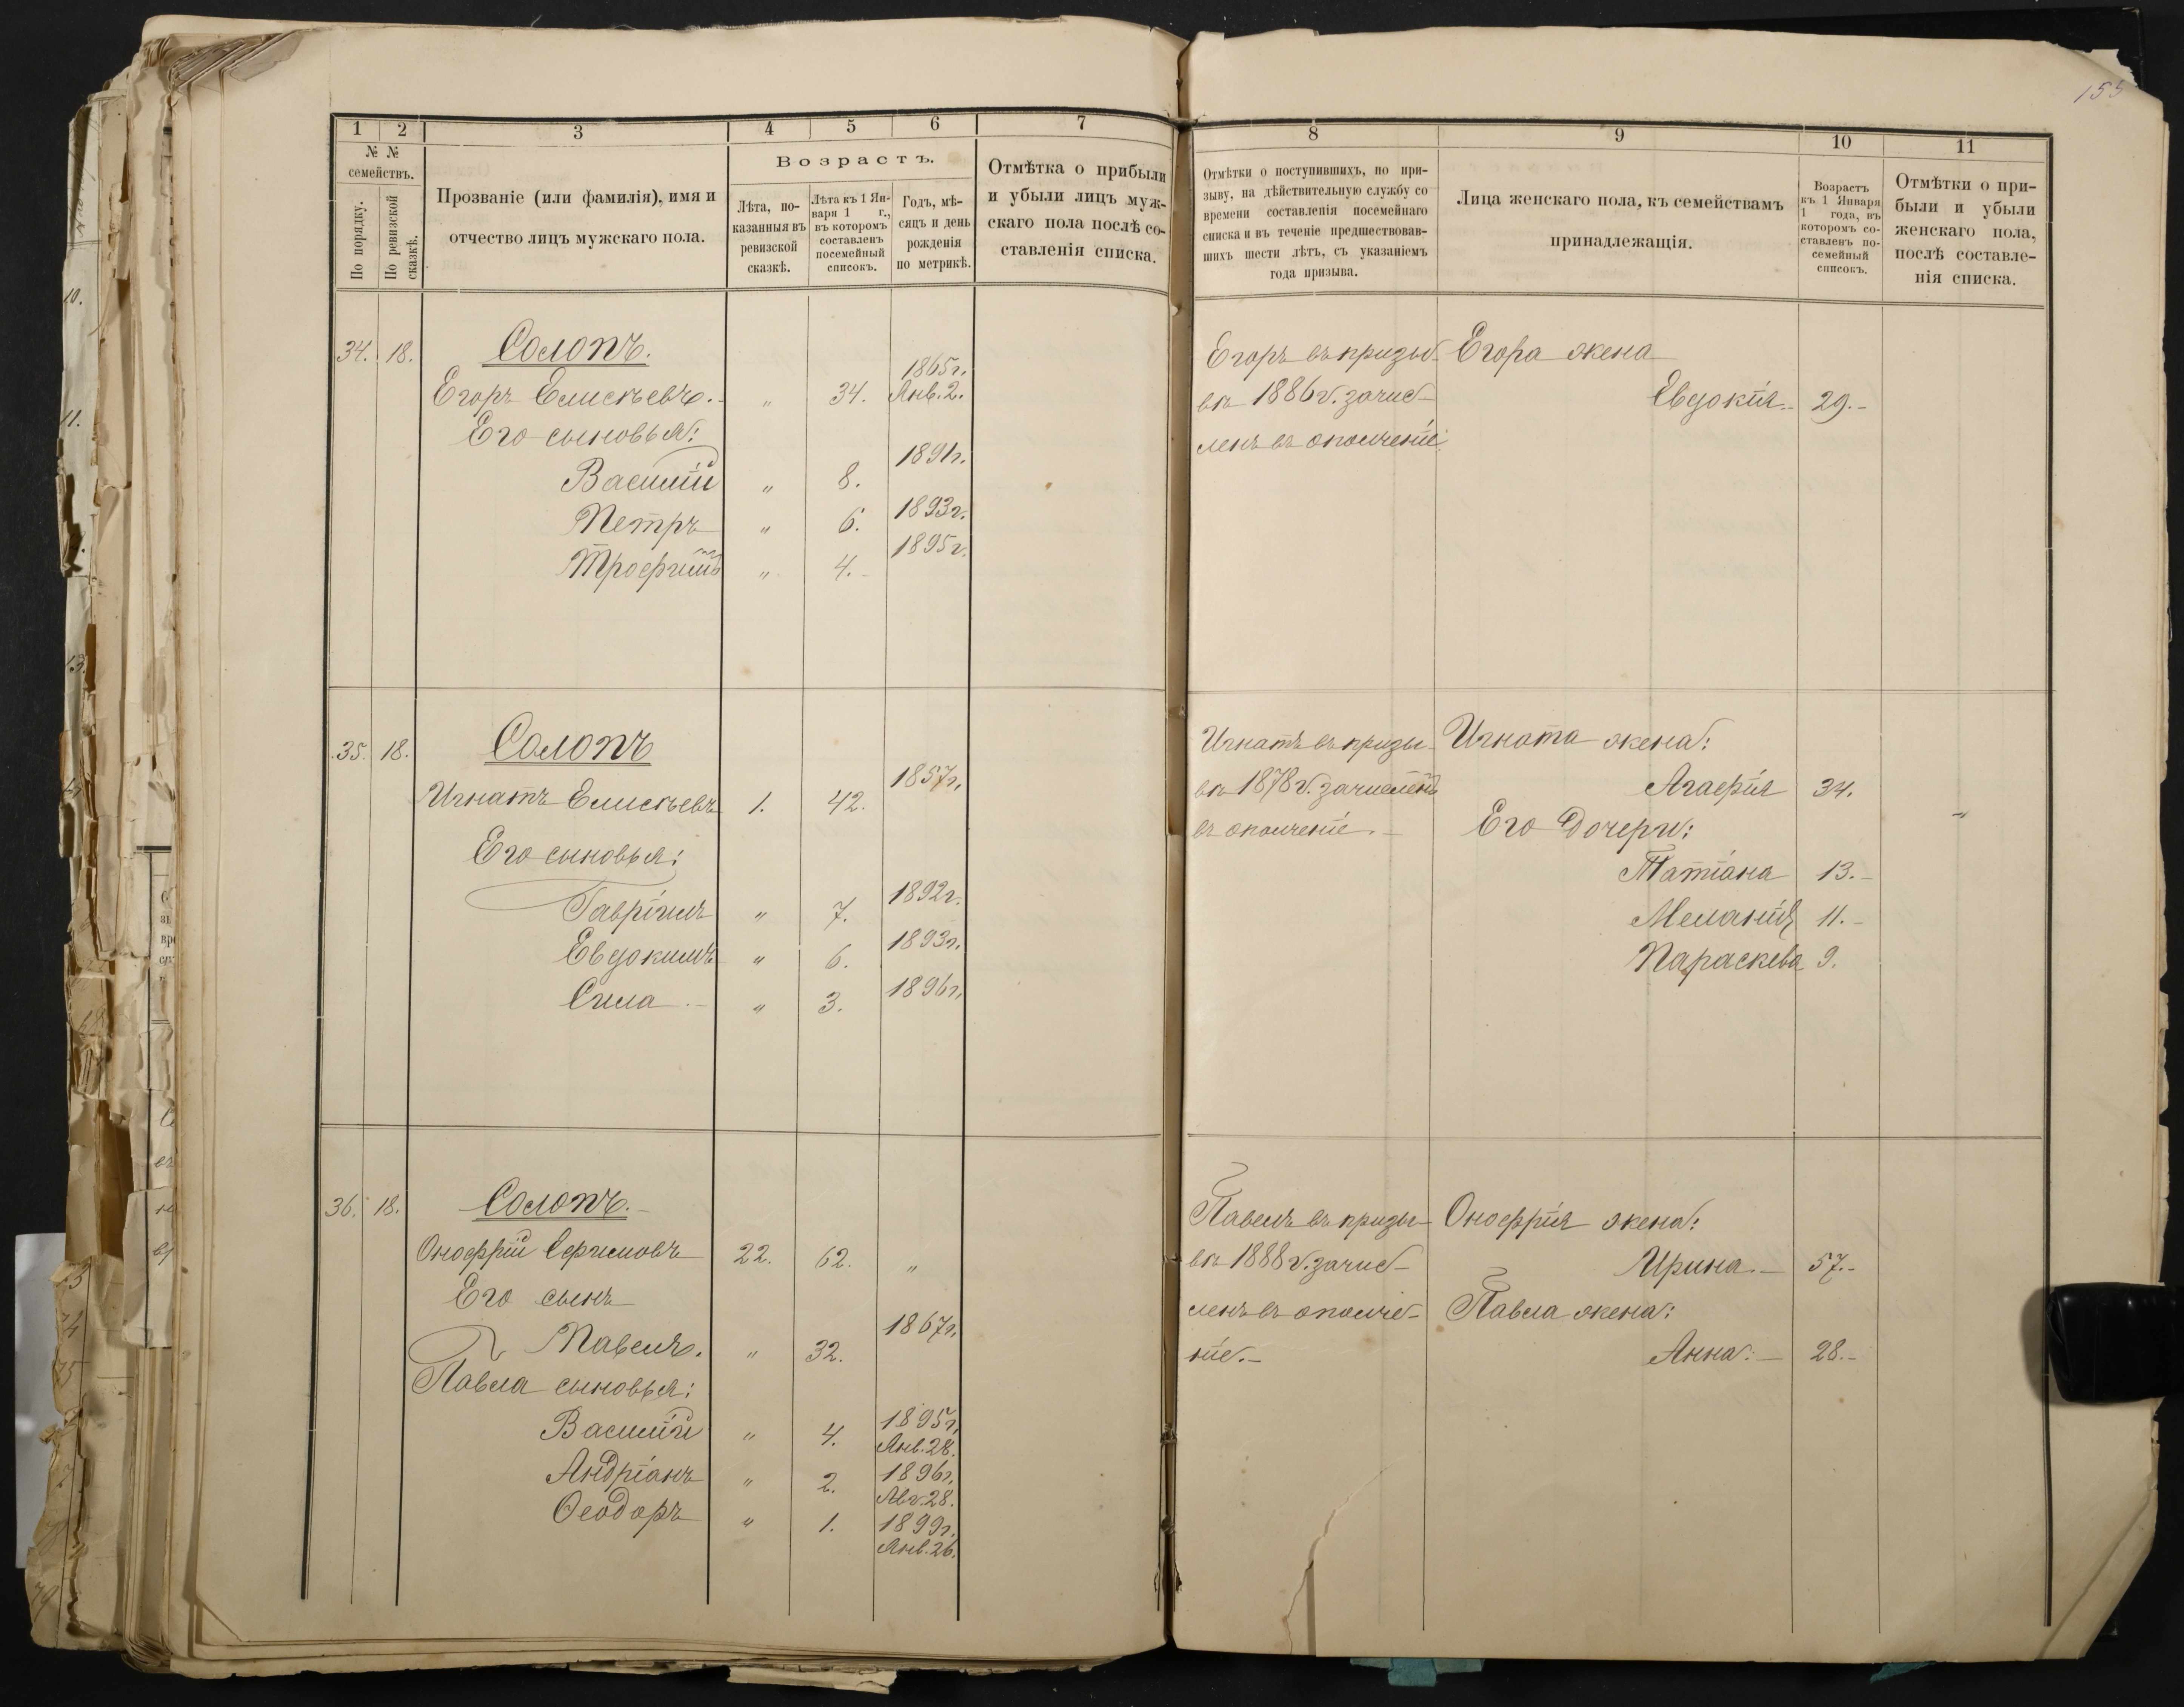 155
1 2 3 4 5 6 7
№ №
семействъ.
По порядку.
По ревизской
сказкѣ.
Прозваніе (или фамилія), имя и
отчество лицъ мужскаго пола.
Возрастъ.
Лѣта, по-
казанныя въ
ревизской
сказкѣ.
Лѣта къ 1 Ян-
варя 1 г.,
въ которомъ
составленъ
посемейный
списокъ.
Годъ, мѣ-
сяцъ и день
рожденія
по метрикѣ.
Отмѣтка о прибыли
и убыли лицъ муж-
скаго пола послѣ со-
ставленія списка.
34. 18. Солопъ.
1865г.
Егоръ Елисѣевъ. „ 34. Янв. 2.
Его сыновья:
1891г.
Василій „ 8.
1893г.
Петръ „ 6.
1895г.
Трофимъ „ 4.
35. 18. Солопъ
1857г.
Игнатъ Елисѣевъ 1. 42.
Его сыновья:
1892г.
Гавріилъ „ 7.
1893г.
Евдокимъ „ 6.
1896г.
Сила „ 3.
36. 18. Солопъ.
Онофрій 22. 62. „
Его сынъ
1867г.
Павелъ. „ 32.
Павла сыновья:
1895г.
Василій „ 4. Янв. 28.
1896г.
Андріанъ „ 2. Авг. 28.
Ѳеодоръ „ 1. 1899г.
Янв. 26.
8 9 10 11
Отмѣтки о поступившихъ, по при-
зыву, на дѣйствительную службу со
времени составленія посемейнаго
списка и въ теченіе предшествовав-
шихъ шести лѣтъ, съ указаніемъ
года призыва.
Лица женскаго пола, къ семействамъ
принадлежащія.
Возрастъ
къ 1 Января
1 года, въ
которомъ со-
ставленъ по-
семейный
списокъ.
Отмѣтки о при-
были и убыли
женскаго пола,
послѣ составле-
нія списка.
Егоръ въ призы-
вѣ 1886 г. зачис-
ленъ въ ополченіе.
Егора жена
Евдокія 29.
Игнатъ въ призы-
вѣ 1878 г. зачисленъ
въ ополченіе.
Игната жена:
Агафія 34.
„
Его дочери:
Татіана 13.
Меланія 11.
Параскева 9.
Павелъ въ призы-
вѣ 1888 г. зачис-
ленъ въ ополче-
ніе.
Онофрія жена:
Ирина. 57.
Павла жена:
Анна: 28.